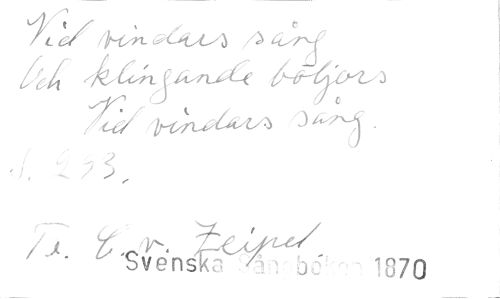 Vid vindars sång
Och klingande böljors
Vid vindars sång.
S. 293.
Te. C. v. Zeipel
Svenska Sångboken 1870